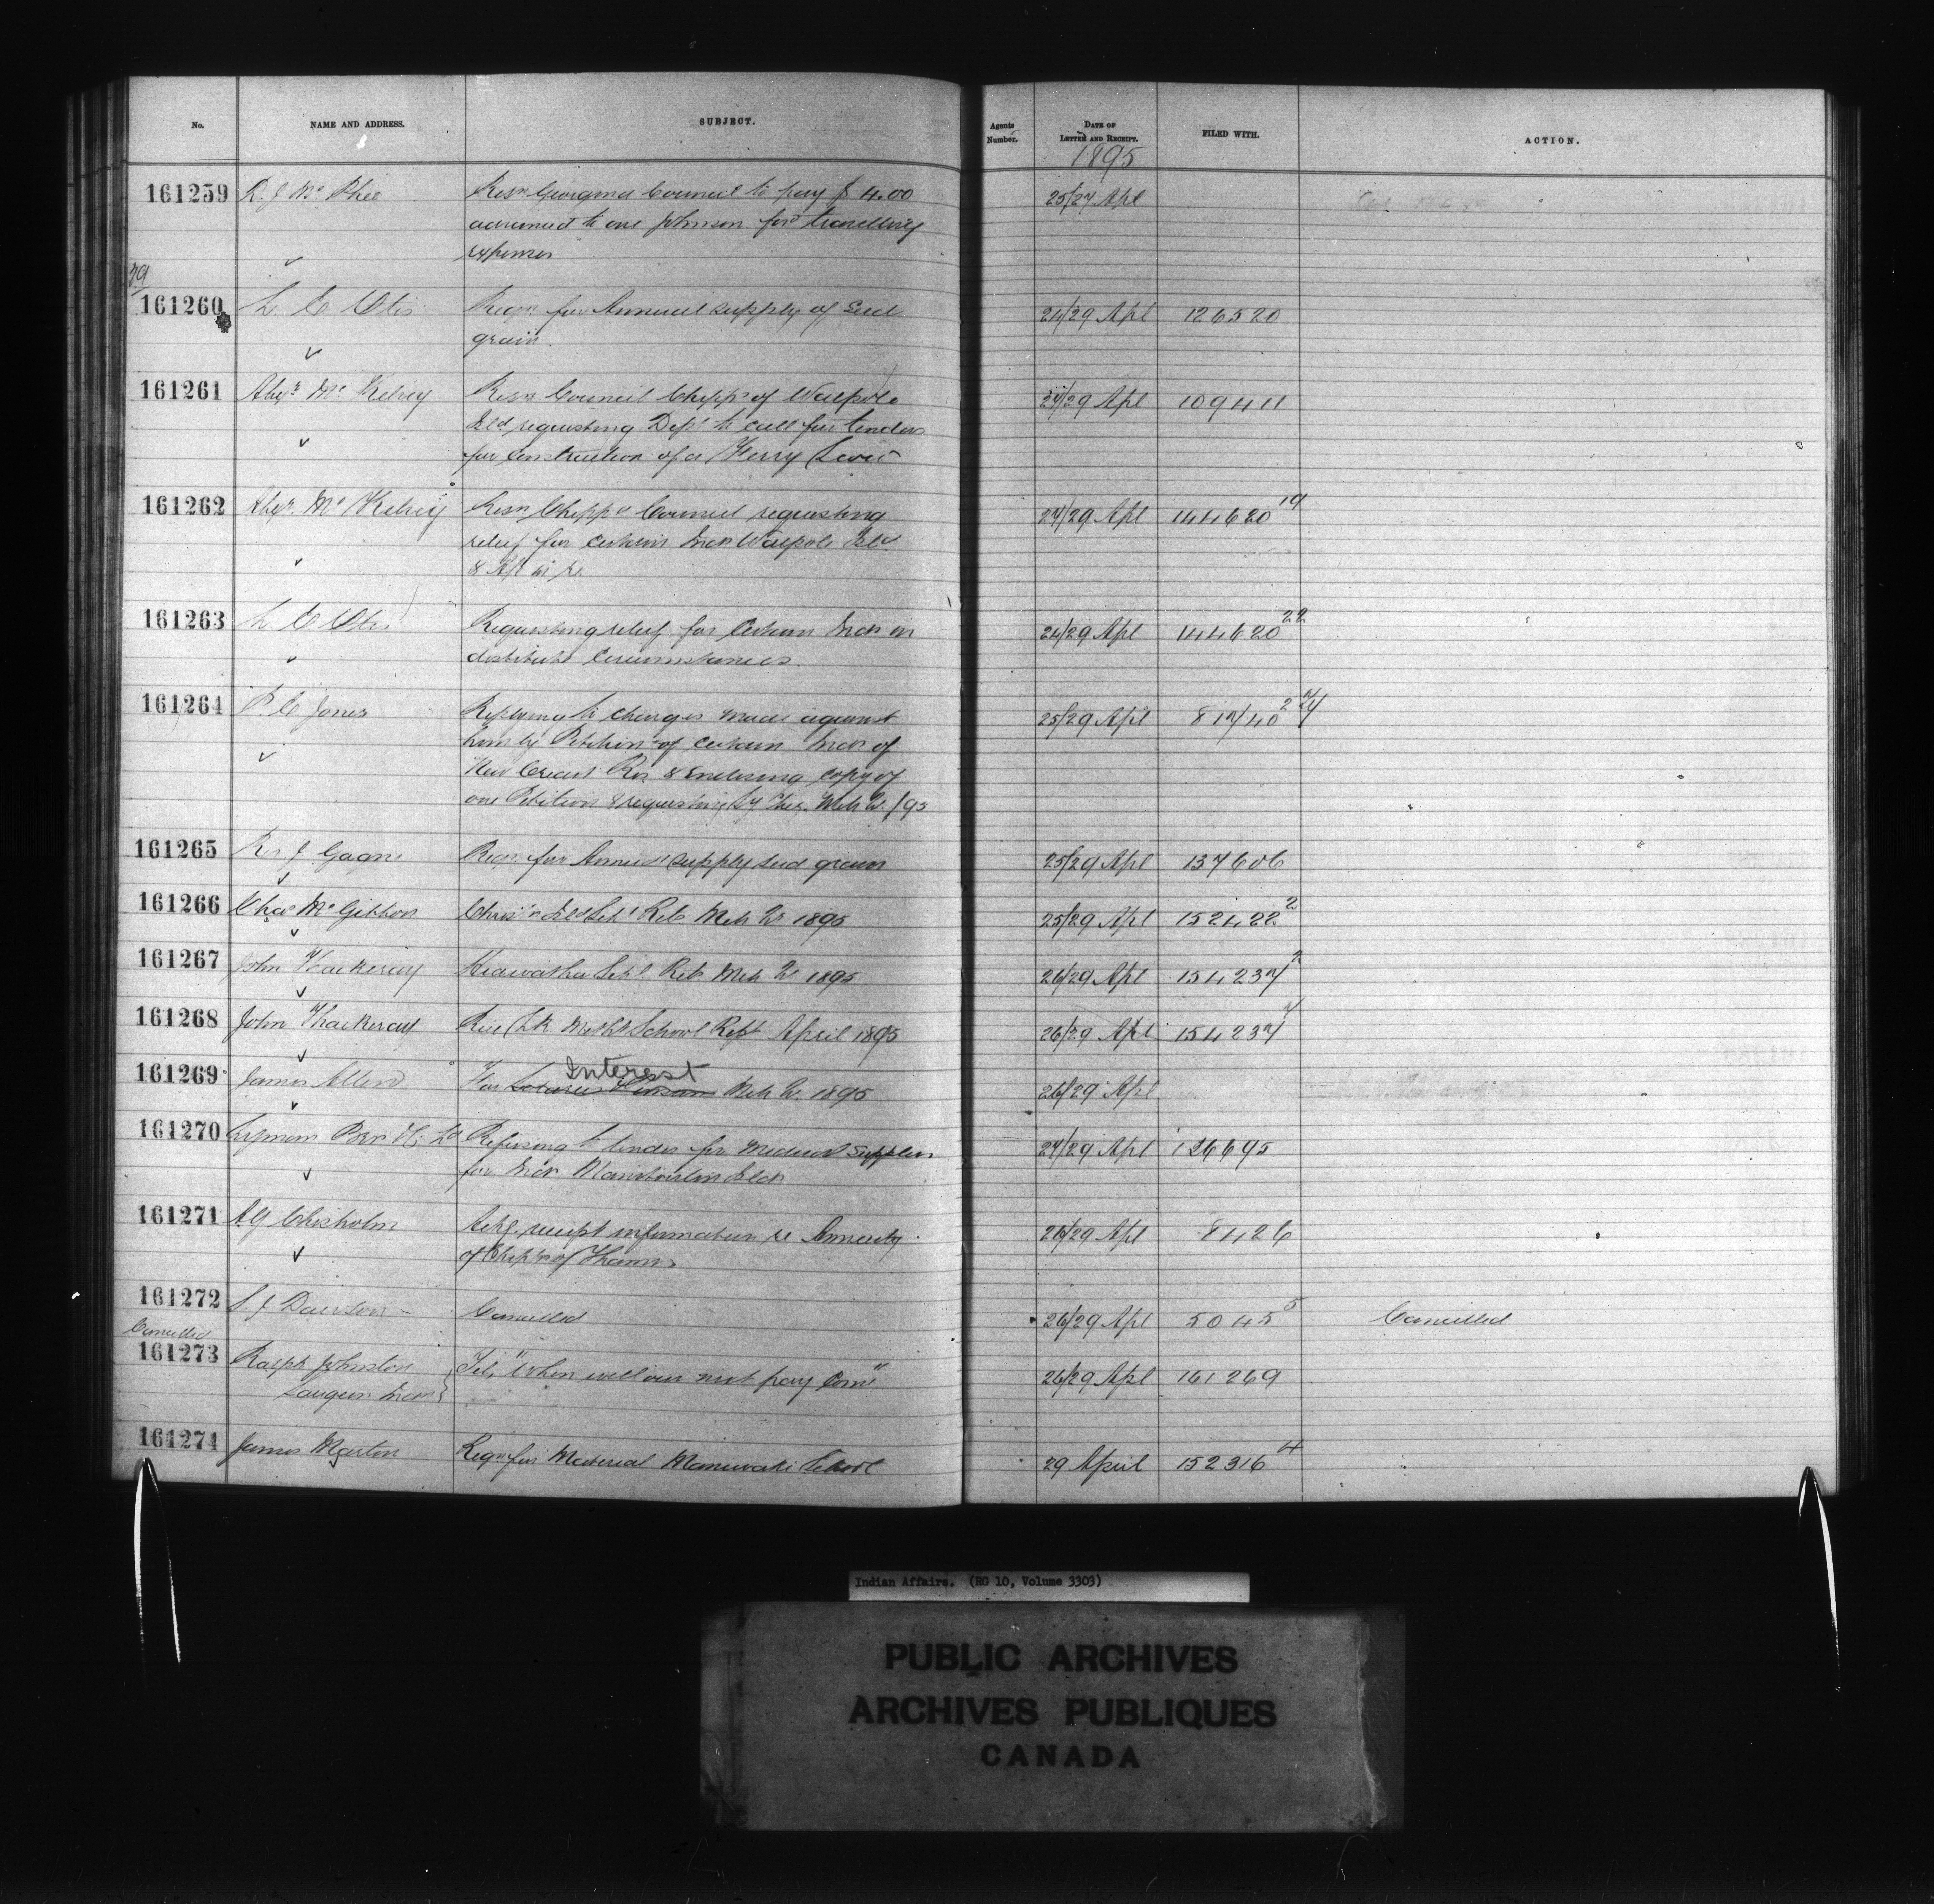 No. NAME AND ADDRESS. SUBJECT. Agents Number. DATE OF LETTER AND RECEIPT. FILED WITH. ACTION.
1895
161259 R. J. Mc Phee Resn. Georgina Council to pay $ 4.00 25/27 Apl
to one Johnson for travelling
expenses
29
161260 L. E. Otis Reqn. for Annual supply of seed 24/29 Apl 126520
grain.
161261 Alexr. Mc Kelvey Resn. Council Chipps of Walpole 27/29 Apl 109411
Isld requesting Dept to call for tenders
for construction of a Ferry Scow
161262 Alexr. Mc Kelvey Resn Chippa Council requesting 27/29 Apl 144620 19
relief for certain Inds Walpole Isld
161263 L. E. Otis Requesting relief for certain Inds in 24/29 Apl 144620 22
destitute circumstances
161264 P. E. Jones Replying to charges made against 25/29 Apl
him by Petition of certain Inds of
New Credit Res & enclosing copy of
one Petition & requesting
161265 Rev J Gagne Reqn for Annual supply seed grain 25/29 Apl 137606
161266 Chas Mc Gibbon Chrisn Isld Schl Ret. Mch Qr 1895 25/29 Apl 152422 2
161267 John Thackeray Hiawatha Schl Ret. Mch Qr 1895 26/29 Apl 154237 2
161268 John Thackeray Rice Lk School Rept April 1895 26/29 Apl 154237
161269 James Allen For Interest Mch Qr. 1895 26/29 Apl
161270 Lyman Bros & Co Ld Refusing to tender for medical supplies 27/29 Apl 126695
for Inds Manitoulin Isld
161271 A G Chisholm Ackg. receipt information re Annuity 26/29 Apl 8426
of Chipps of Thames
161272 S. J. Dawson Cancelled 26/29 Apl 5045 5 Cancelled
Cancelled
161273 Ralph Johnston Tel, "When will our next pay Come" 26/29 Apl 161269
Saugeen Inds
161274 James Martin Reqn for Material Maniwaki School 29 April 152316 4
Indian Affairs. (RG 10, Volume 3303)
PUBLIC ARCHIVES
ARCHIVES PUBLIQUES
CANADA